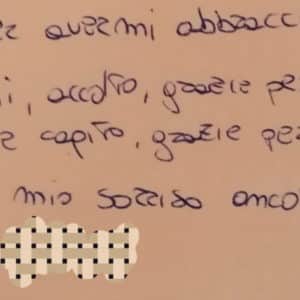 er avermi abbracc
i, accolto, grazie pe
e capito, grazie per
mio sorriso anco